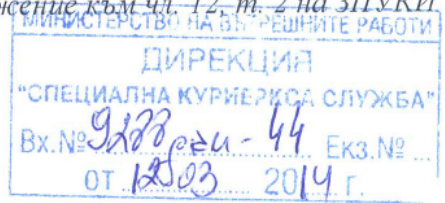 жение към чл. 12, т. 2 на ЗПУКИ
МИНИСТЕРСТВО НА ВЪТРЕШНИТЕ РАБОТИ
ДИРЕКЦИЯ
"СПЕЦИАЛНА КУРИЕРКСА СЛУЖБА"
Вх.№ - 44 Екз.№ ...
ОТ 12.03 2014 г.